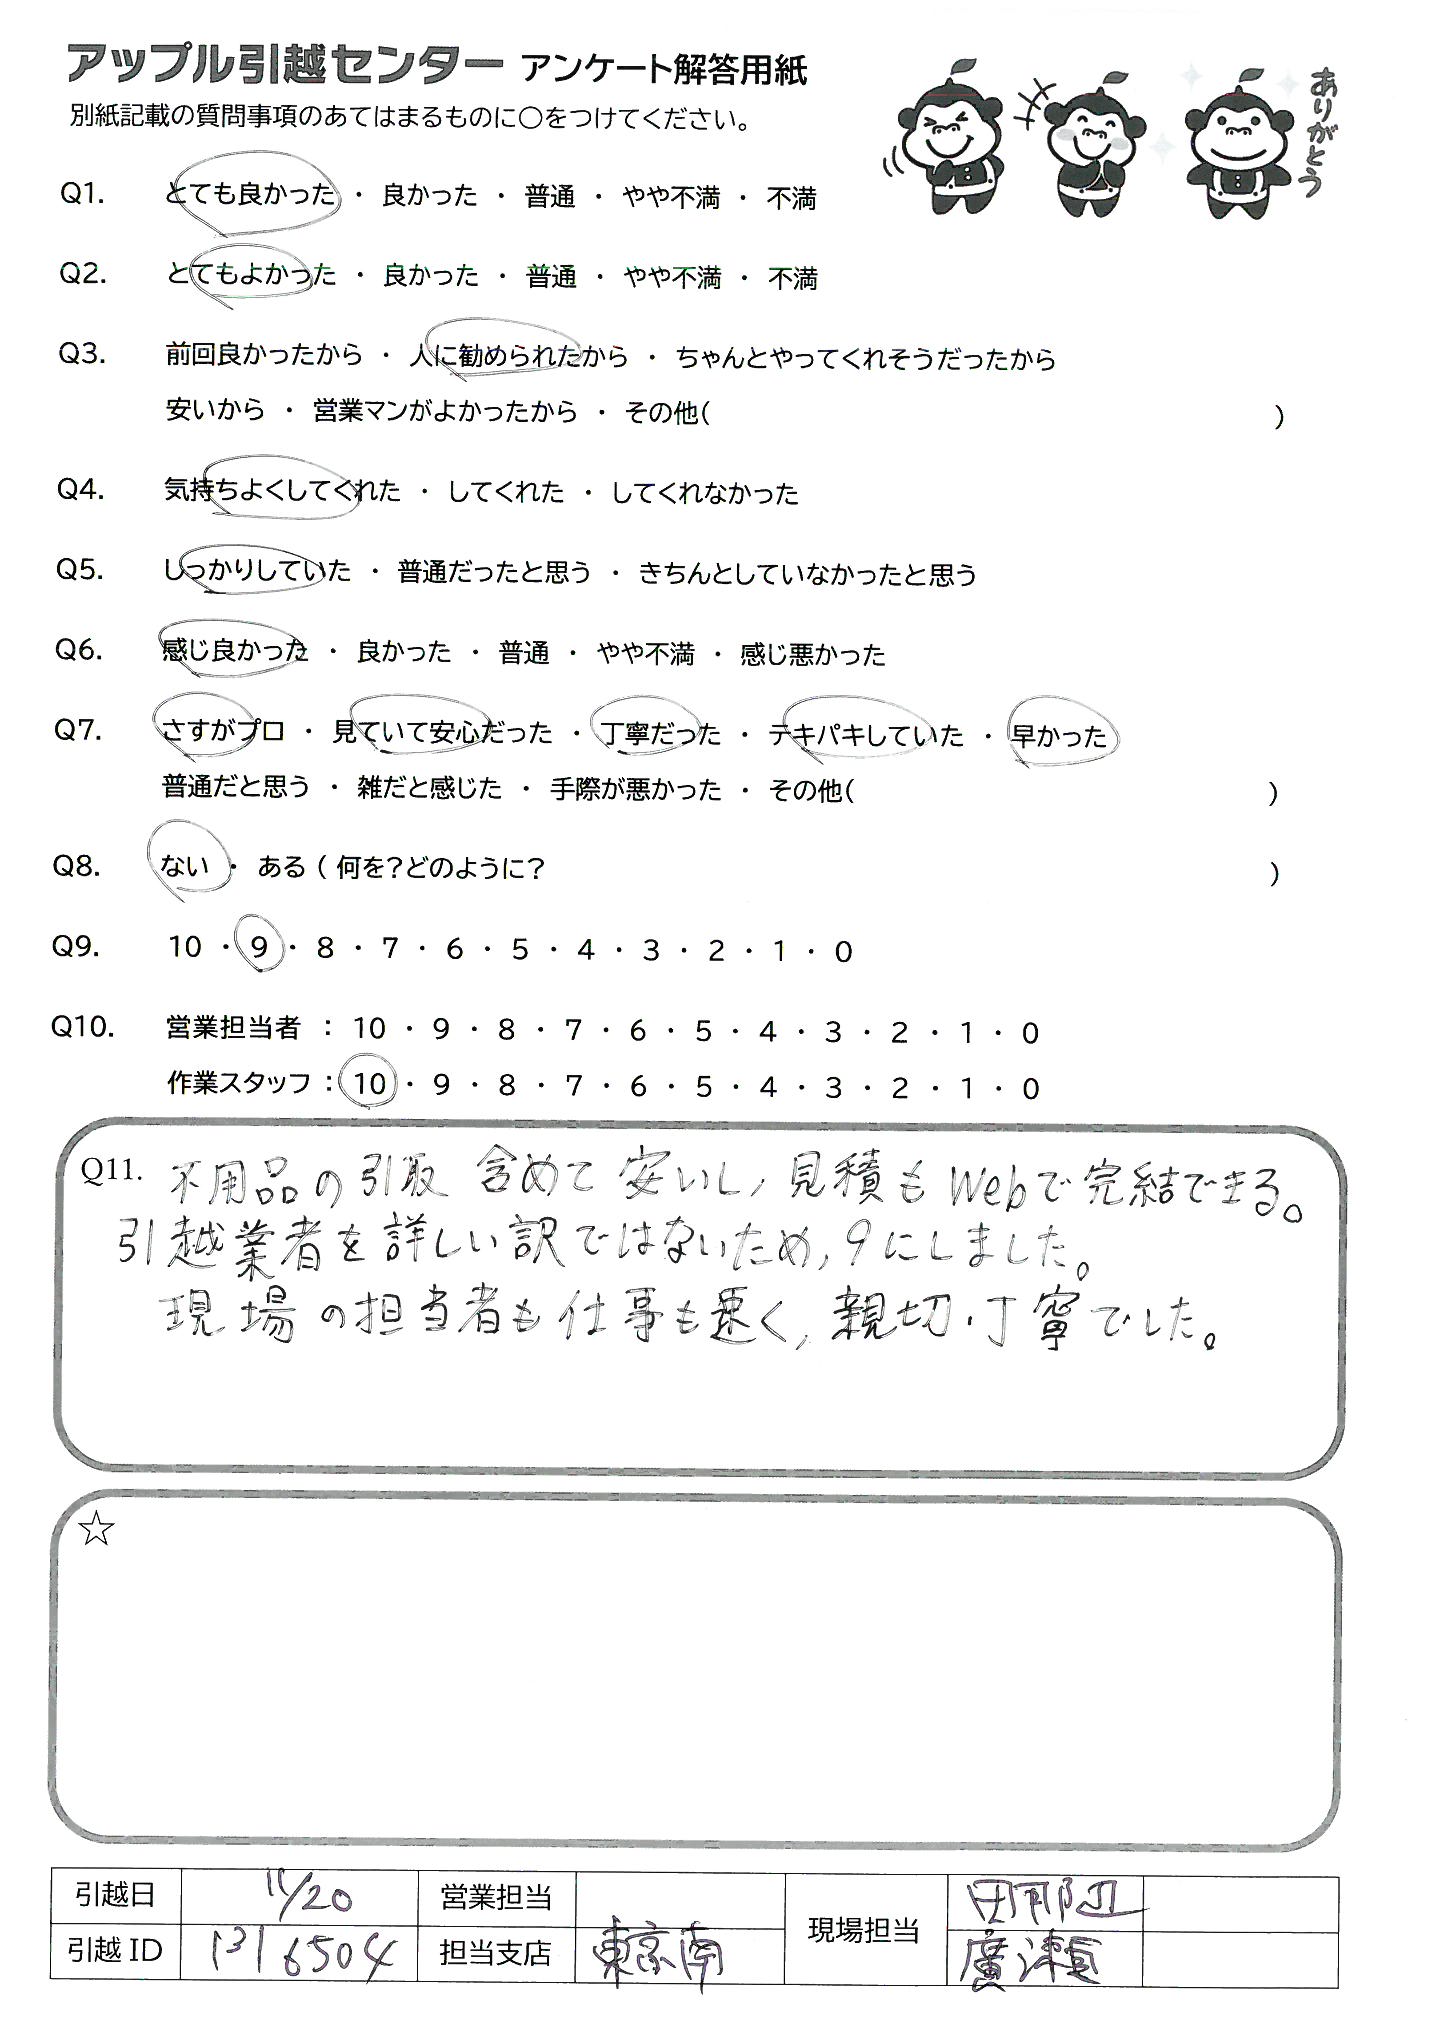 アップル引越センター アンケート解答用紙
別紙記載の質問事項のあてはまるものに○をつけてください。
ありがとう
Q1. とても良かった ・ 良かった ・ 普通 ・ やや不満 ・ 不満
Q2. とてもよかった ・ 良かった ・ 普通 ・ やや不満 ・ 不満
Q3. 前回良かったから ・ 人に勧められたから ・ ちゃんとやってくれそうだったから
安いから ・ 営業マンがよかったから ・ その他( )
Q4. 気持ちよくしてくれた ・ してくれた ・ してくれなかった
Q5. しっかりしていた ・ 普通だったと思う ・ きちんとしていなかったと思う
Q6. 感じ良かった ・ 良かった ・ 普通 ・ やや不満 ・ 感じ悪かった
Q7. さすがプロ ・ 見ていて安心だった ・ 丁寧だった ・ テキパキしていた ・ 早かった
普通だと思う ・ 雑だと感じた ・ 手際が悪かった ・ その他( )
Q8. ない ・ ある ( 何を?どのように? )
Q9. 10 ・ 9 ・ 8 ・ 7 ・ 6 ・ 5 ・ 4 ・ 3 ・ 2 ・ 1 ・ 0
Q10. 営業担当者 : 10 ・ 9 ・ 8 ・ 7 ・ 6 ・ 5 ・ 4 ・ 3 ・ 2 ・ 1 ・ 0
作業スタッフ : 10 ・ 9 ・ 8 ・ 7 ・ 6 ・ 5 ・ 4 ・ 3 ・ 2 ・ 1 ・ 0
Q11. 不用品の引取 含めて 安いし、見積も Webで完結できる。
引越業者を詳しい訳ではないため、9にしました。
現場の担当者も仕事も速く、親切・丁寧でした。
☆
引越日 11/20 営業担当 現場担当 田那辺
引越 ID 1316504 担当支店 東京南 廣瀬